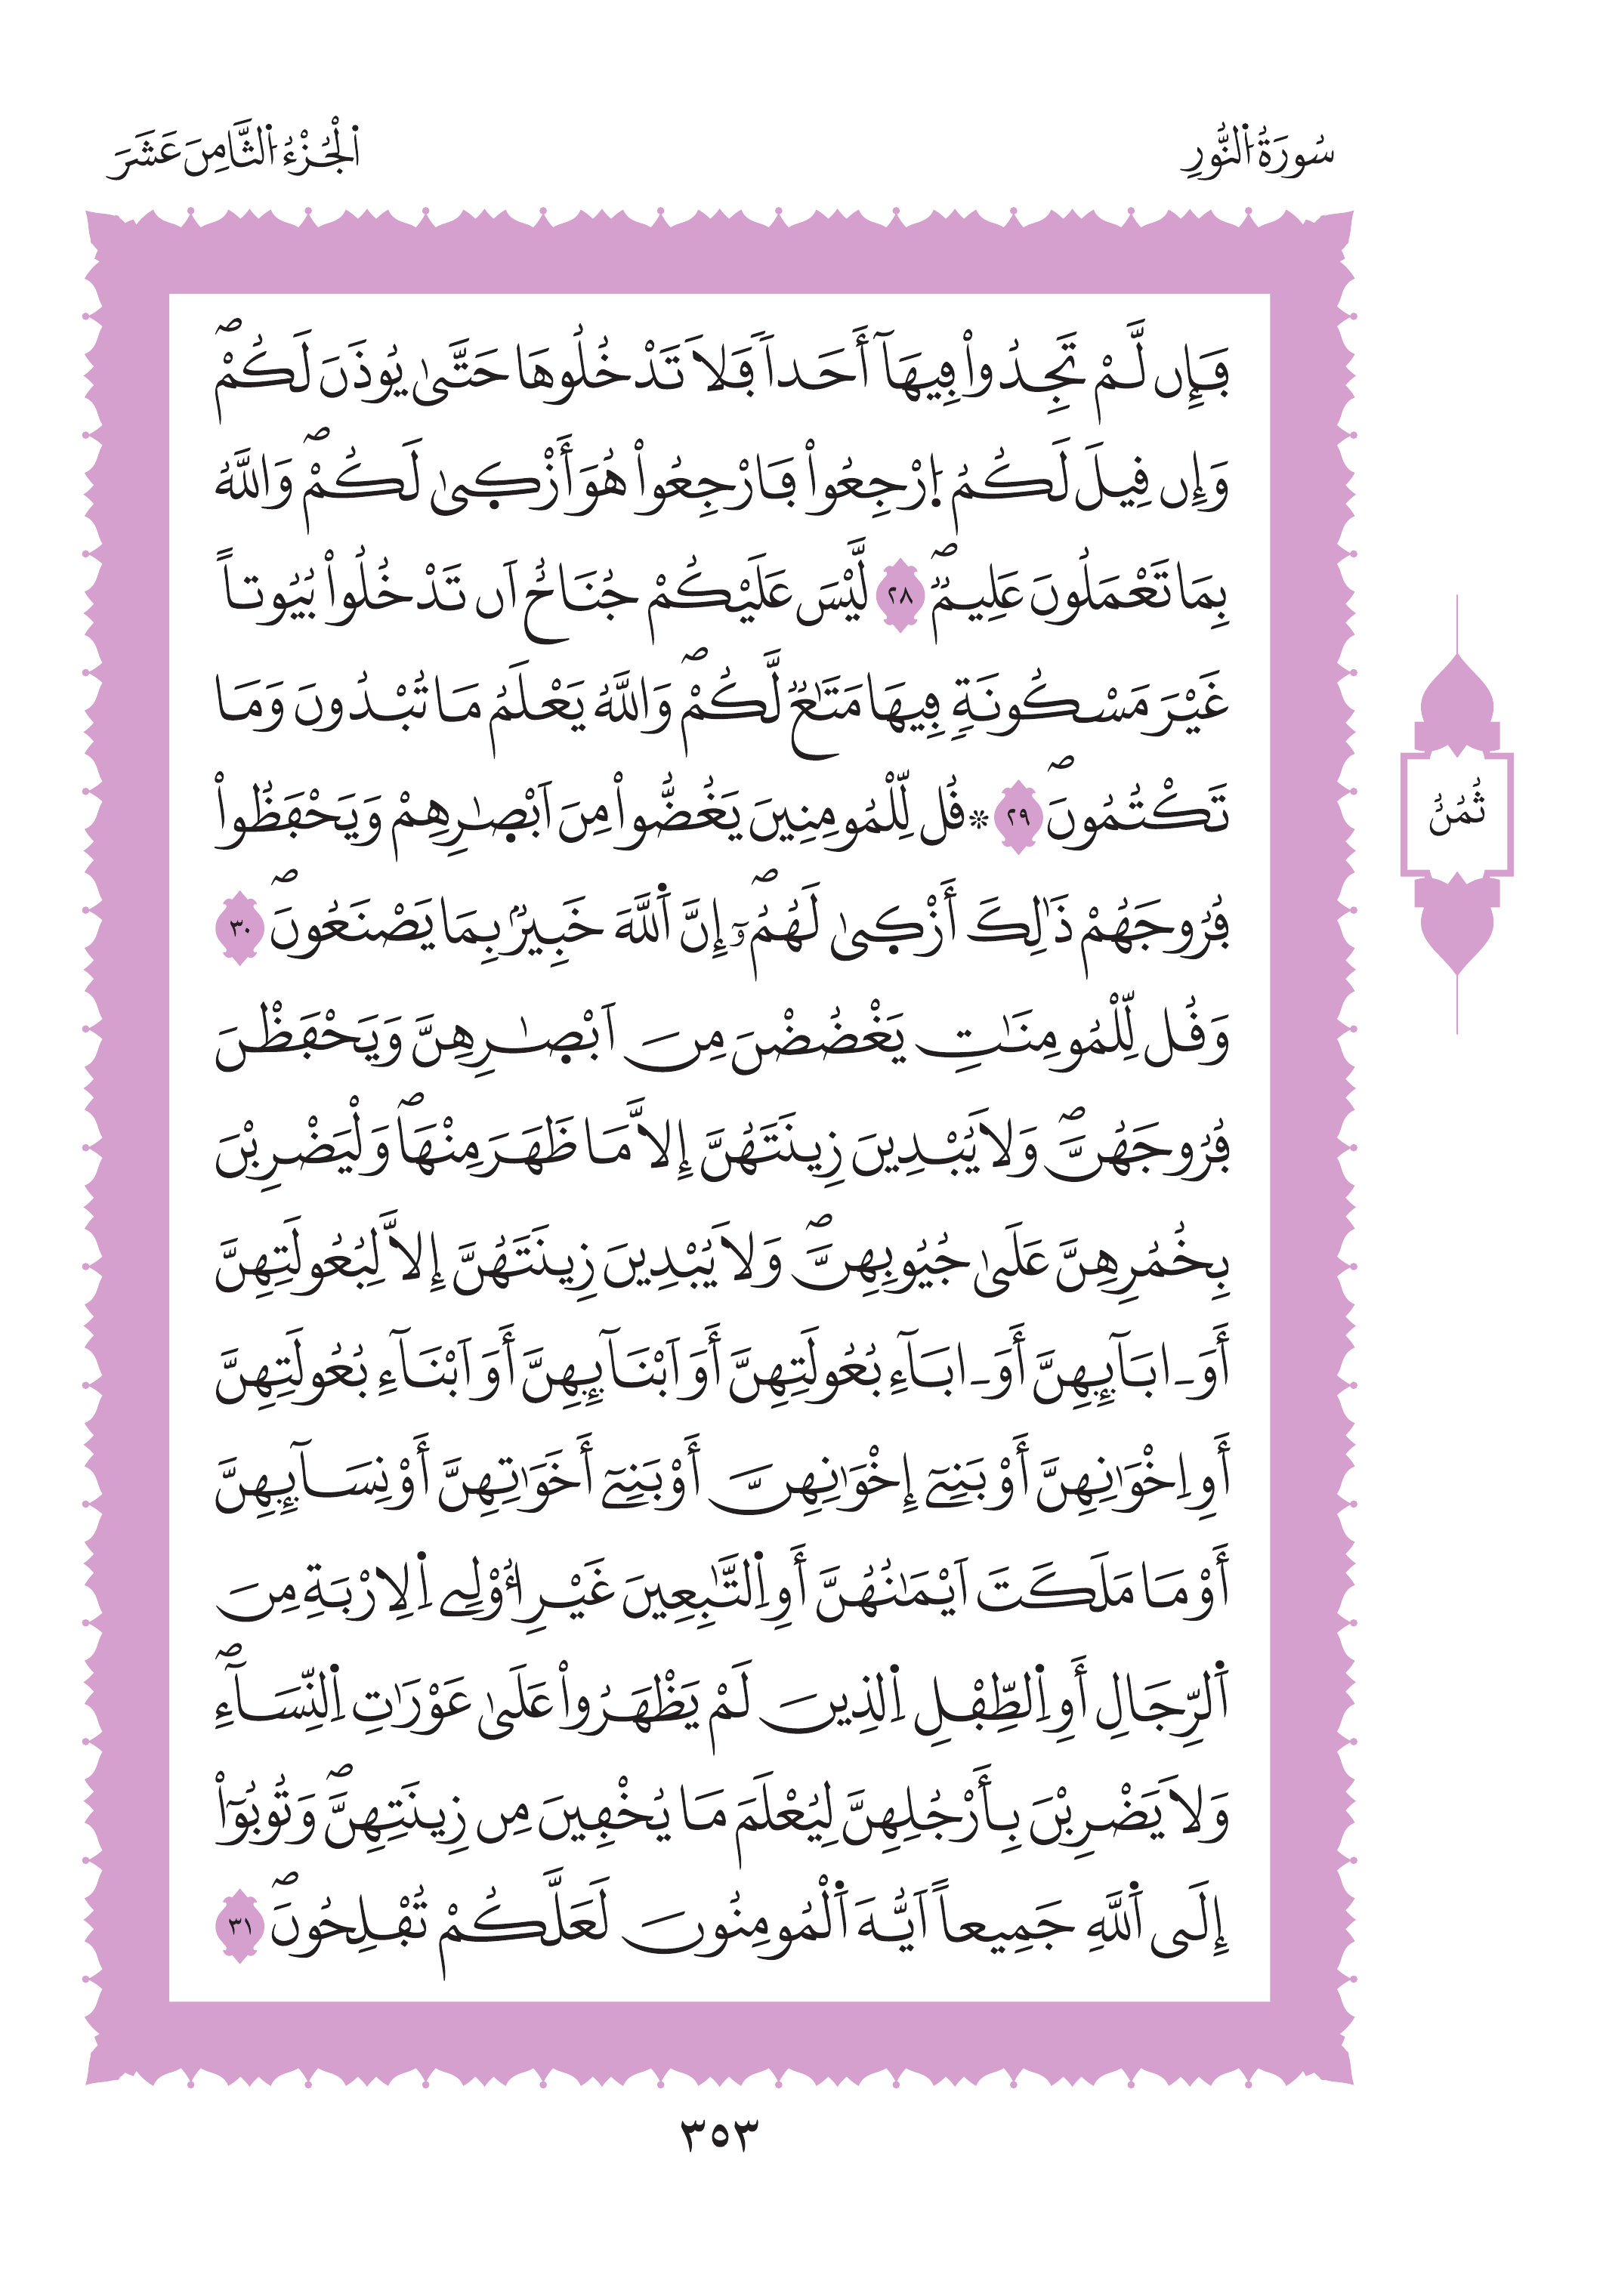 سُورَةُ اُ۬لنُّورِ
اَ۬لْجُزْءُ اُ۬لثَّامِنَ عَشَرَ
فَإِن لَّمْ تَجِدُواْ فِيهَآ أَحَداٗ فَلَا تَدْخُلُوهَا حَتَّىٰ يُوذَنَ لَكُمْۖ
وَإِن قِيلَ لَكُمُ اُ۪رْجِعُواْ فَارْجِعُواْ هُوَ أَزْك۪ىٰ لَكُمْۖ وَاللَّهُ
بِمَا تَعْمَلُونَ عَلِيمٞۖ ٢٨ لَّيْسَ عَلَيْكُمْ جُنَاحٌ اَن تَدْخُلُواْ بُيُوتاً
غَيْرَ مَسْكُونَةٖ فِيهَا مَتَٰعٞ لَّكُمْۖ وَاللَّهُ يَعْلَمُ مَا تُبْدُونَ وَمَا
تَكْتُمُونَۖ ٢٩ ۞ قُل لِّلْمُومِنِينَ يَغُضُّواْ مِنَ اَبْصٰ۪رِهِمْ وَيَحْفَظُواْ
فُرُوجَهُمْ ذَٰلِكَ أَزْك۪ىٰ لَهُمُۥٓۖ إِنَّ اَ۬للَّهَ خَبِيرُۢ بِمَا يَصْنَعُونَۖ ٣٠
وَقُل لِّلْمُومِنَٰتِ يَغْضُضْنَ مِنَ اَبْصٰ۪رِهِنَّ وَيَحْفَظْنَ
فُرُوجَهُنَّۖ وَلَا يُبْدِينَ زِينَتَهُنَّ إِلَّا مَا ظَهَرَ مِنْهَاۖ وَلْيَضْرِبْنَ
بِخُمُرِهِنَّ عَلَىٰ جُيُوبِهِنَّۖ وَلَا يُبْدِينَ زِينَتَهُنَّ إِلَّا لِبُعُولَتِهِنَّ
أَوَ ـ ابَآئِهِنَّ أَوَ ـ ابَآءِ بُعُولَتِهِنَّ أَوَ اَبْنَآئِهِنَّ أَوَ اَبْنَآءِ بُعُولَتِهِنَّ
أَوِ اِخْوَٰنِهِنَّ أَوْ بَنِےٓ إِخْوَٰنِهِنَّ أَوْ بَنِےٓ أَخَوَٰتِهِنَّ أَوْ نِسَآئِهِنَّ
أَوْ مَا مَلَكَتَ اَيْمَٰنُهُنَّ أَوِ اِ۬لتَّٰبِعِينَ غَيْرِ أُوْلِے اِ۬لِارْبَةِ مِنَ
اَ۬لرِّجَالِ أَوِ اِ۬لطِّفْلِ اِ۬لذِينَ لَمْ يَظْهَرُواْ عَلَىٰ عَوْرَٰتِ اِ۬لنِّسَآءِۖ
وَلَا يَضْرِبْنَ بِأَرْجُلِهِنَّ لِيُعْلَمَ مَا يُخْفِينَ مِن زِينَتِهِنَّۖ وَتُوبُوٓاْ
إِلَى اَ۬للَّهِ جَمِيعاً اَيُّهَ اَ۬لْمُومِنُونَ لَعَلَّكُمْ تُفْلِحُونَۖ ٣١
ثُمُنُ
٣٥٣